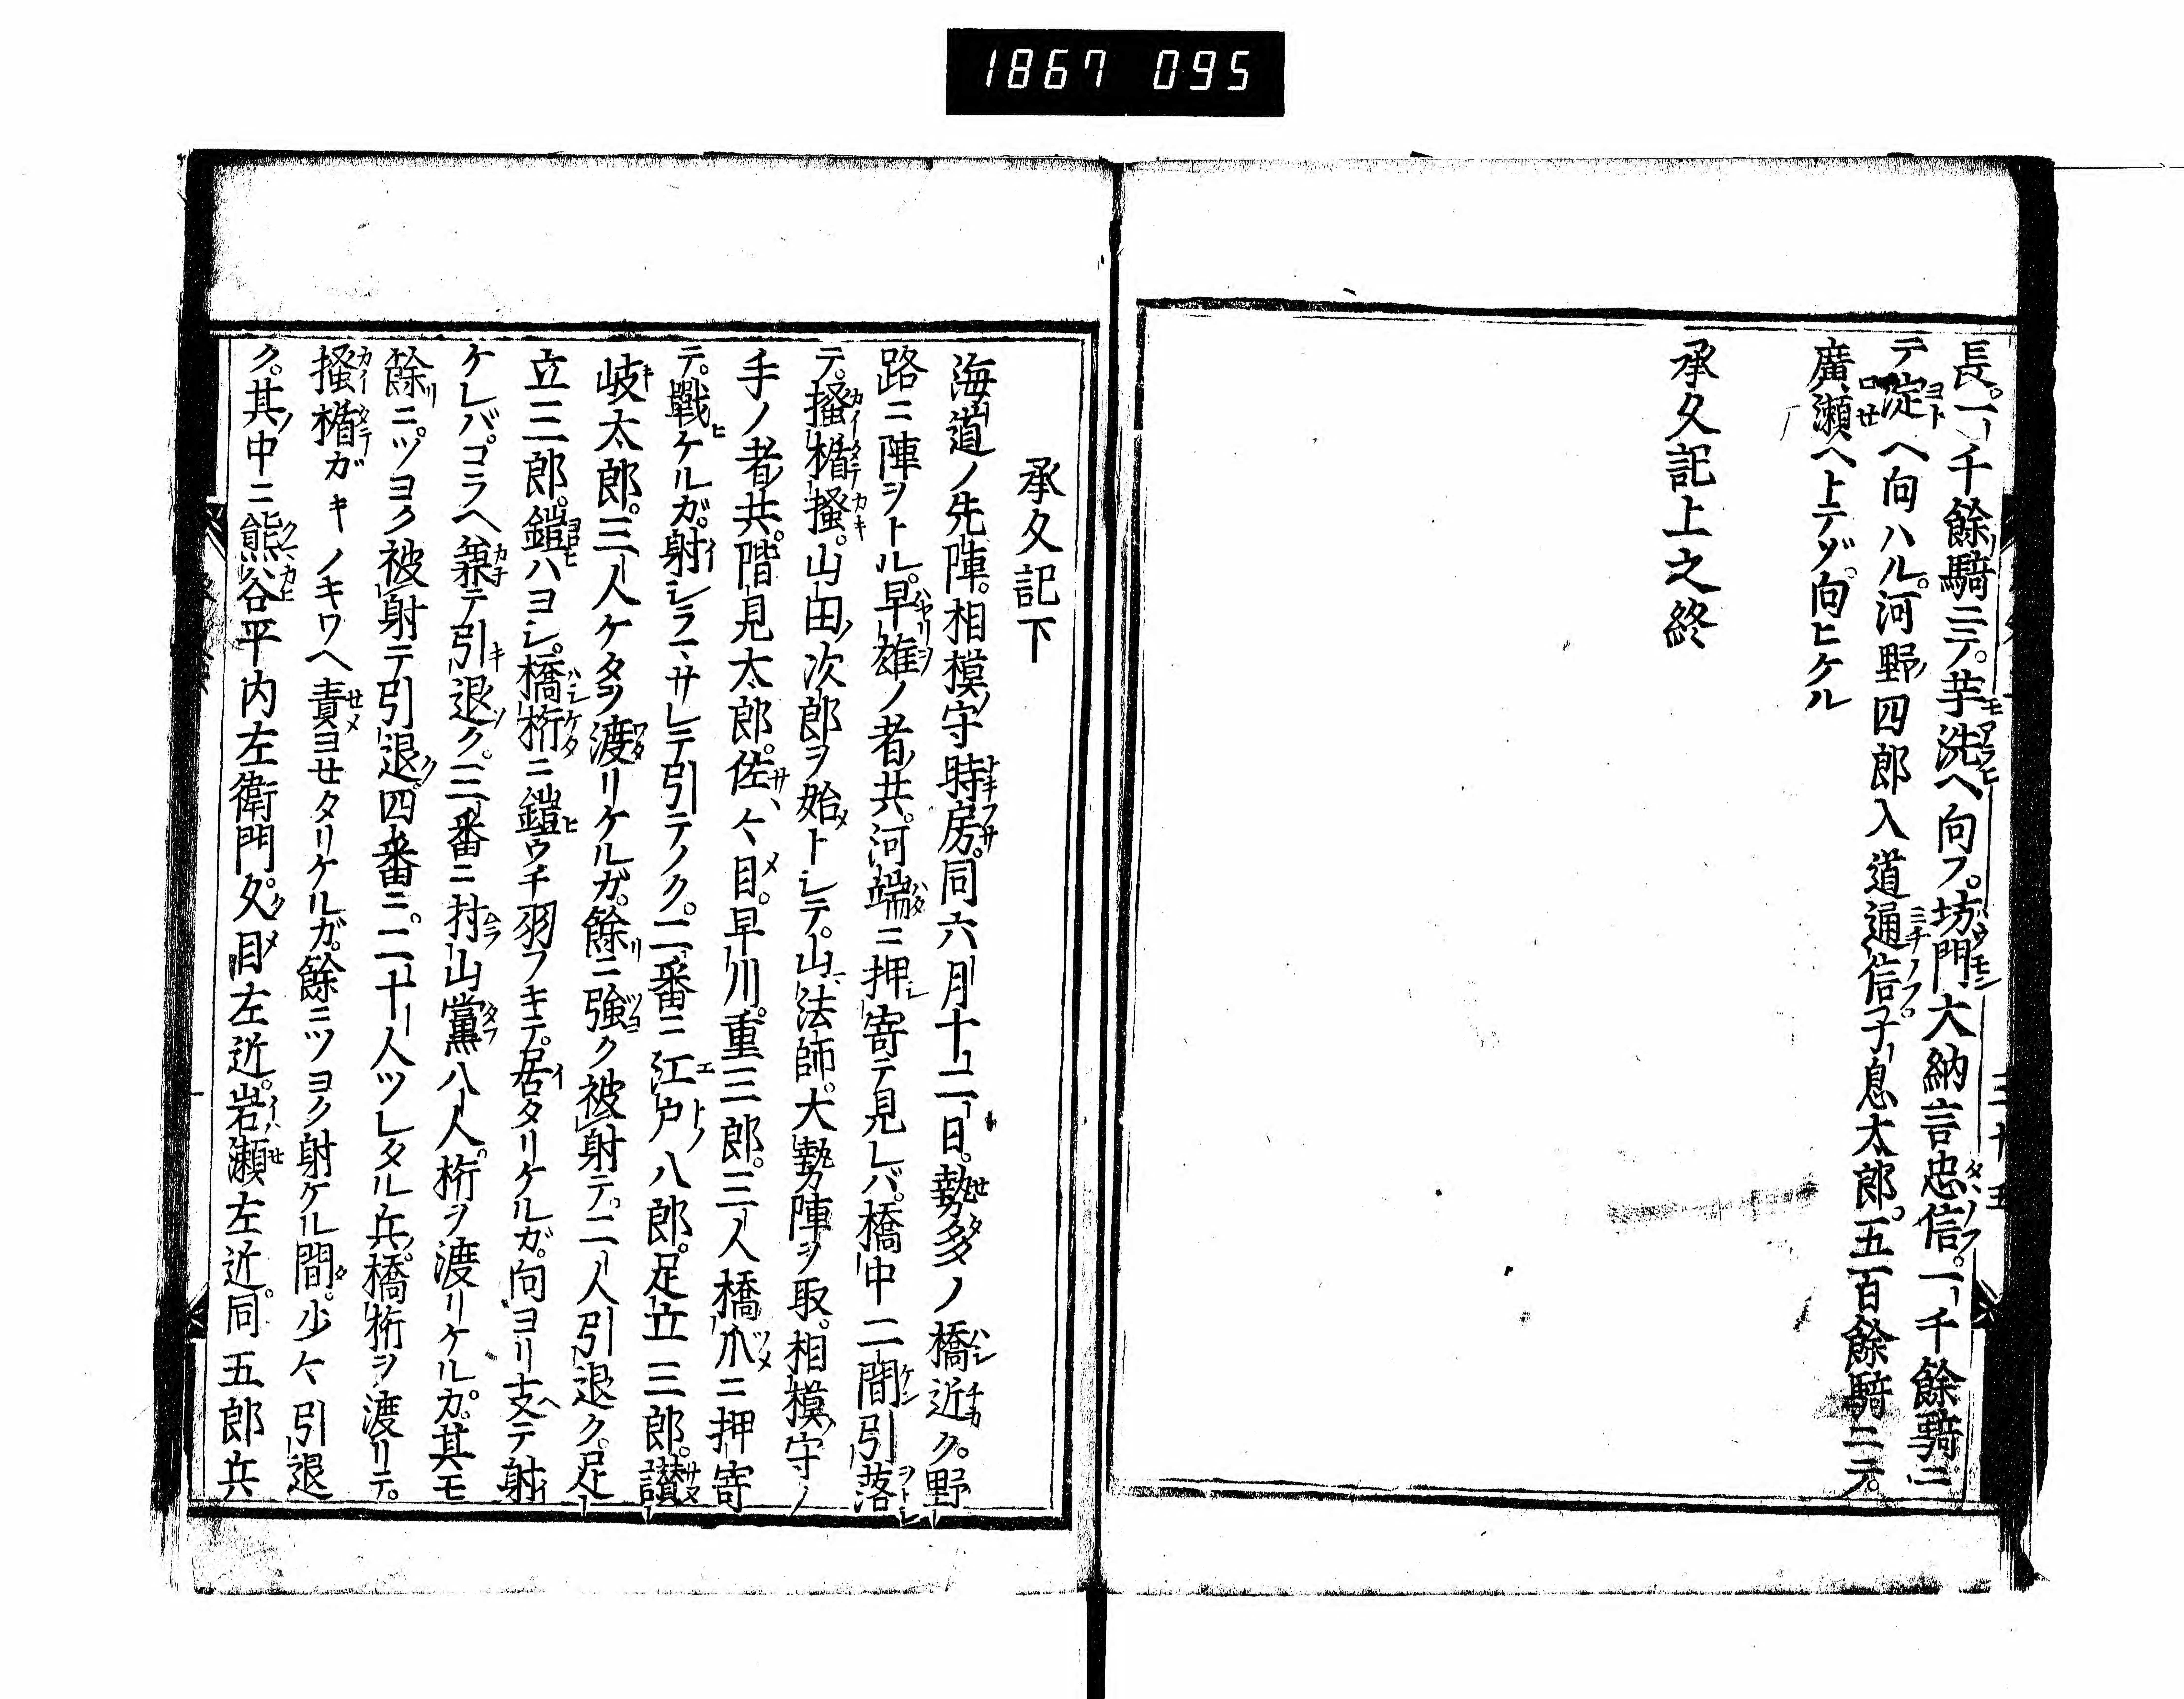 1867 095
長。一千餘騎ニテ。芋洗ヘ向フ。坊門大納言忠信。一千餘騎ニ
テ淀ヘ向ハル。河野四郎入道通信子息太郎。五百餘騎ニテ。
廣瀬ヘトテゾ。向ヒケル
承久記上之終
三十五
承久記下
海道ノ先陣。相模守時房。同六月十二日。勢多ノ橋近ク。野
路ニ陣ヲトル。早雄ノ者共。河端ニ押寄テ見レバ。橋中二間引落
テ。搔楯搔。山田次郎ヲ始トシテ。山法師。大勢陣ヲ取。相模守ノ
手ノ者共。階見太郎。佐々目。早川。重三郎。三人橋爪ニ押寄
テ。戰ケルガ。射シラマサレテ引テノク。二番ニ江戸八郎。足立三郎。讃
岐太郎。三人ケタヲ渡リケルガ。餘ニ強ク被射テ。二人引退ク。足
立三郎。鎧ハヨシ。橋桁ニ鎧ウチ羽フキテ。居タリケルガ。向ヨリ支テ射
ケレバ。コラヘ兼テ引退ク。三番ニ村山黨八人。桁ヲ渡リケルガ。其モ
餘ニ。ツヨク被射テ引退。四番ニ。二十人ツレタル兵。橋桁ヲ渡リテ。
搔楯ガキノキワヘ責ヨセタリケルガ。餘ニツヨク射ケル間。少々引退
ク。其中ニ熊谷平内左衛門。久目左近。岩瀬左近。同五郎兵